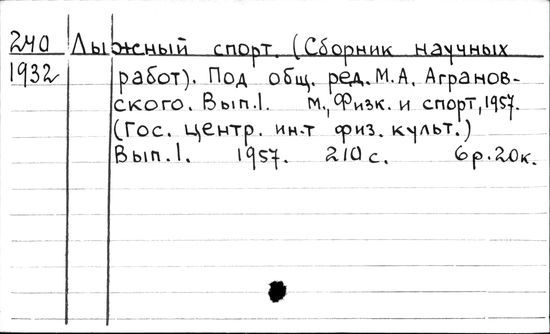 240 Лыжный спорт. (Сборник научных
1932 работ). Под общ. ред. М.А. Агранов-
ского. Вып.1. М., Физк. и спорт, 1957.
(Гос. центр. ин-т физ. культ.)
Вып.1. 1957. 210 с. 6р.20к.